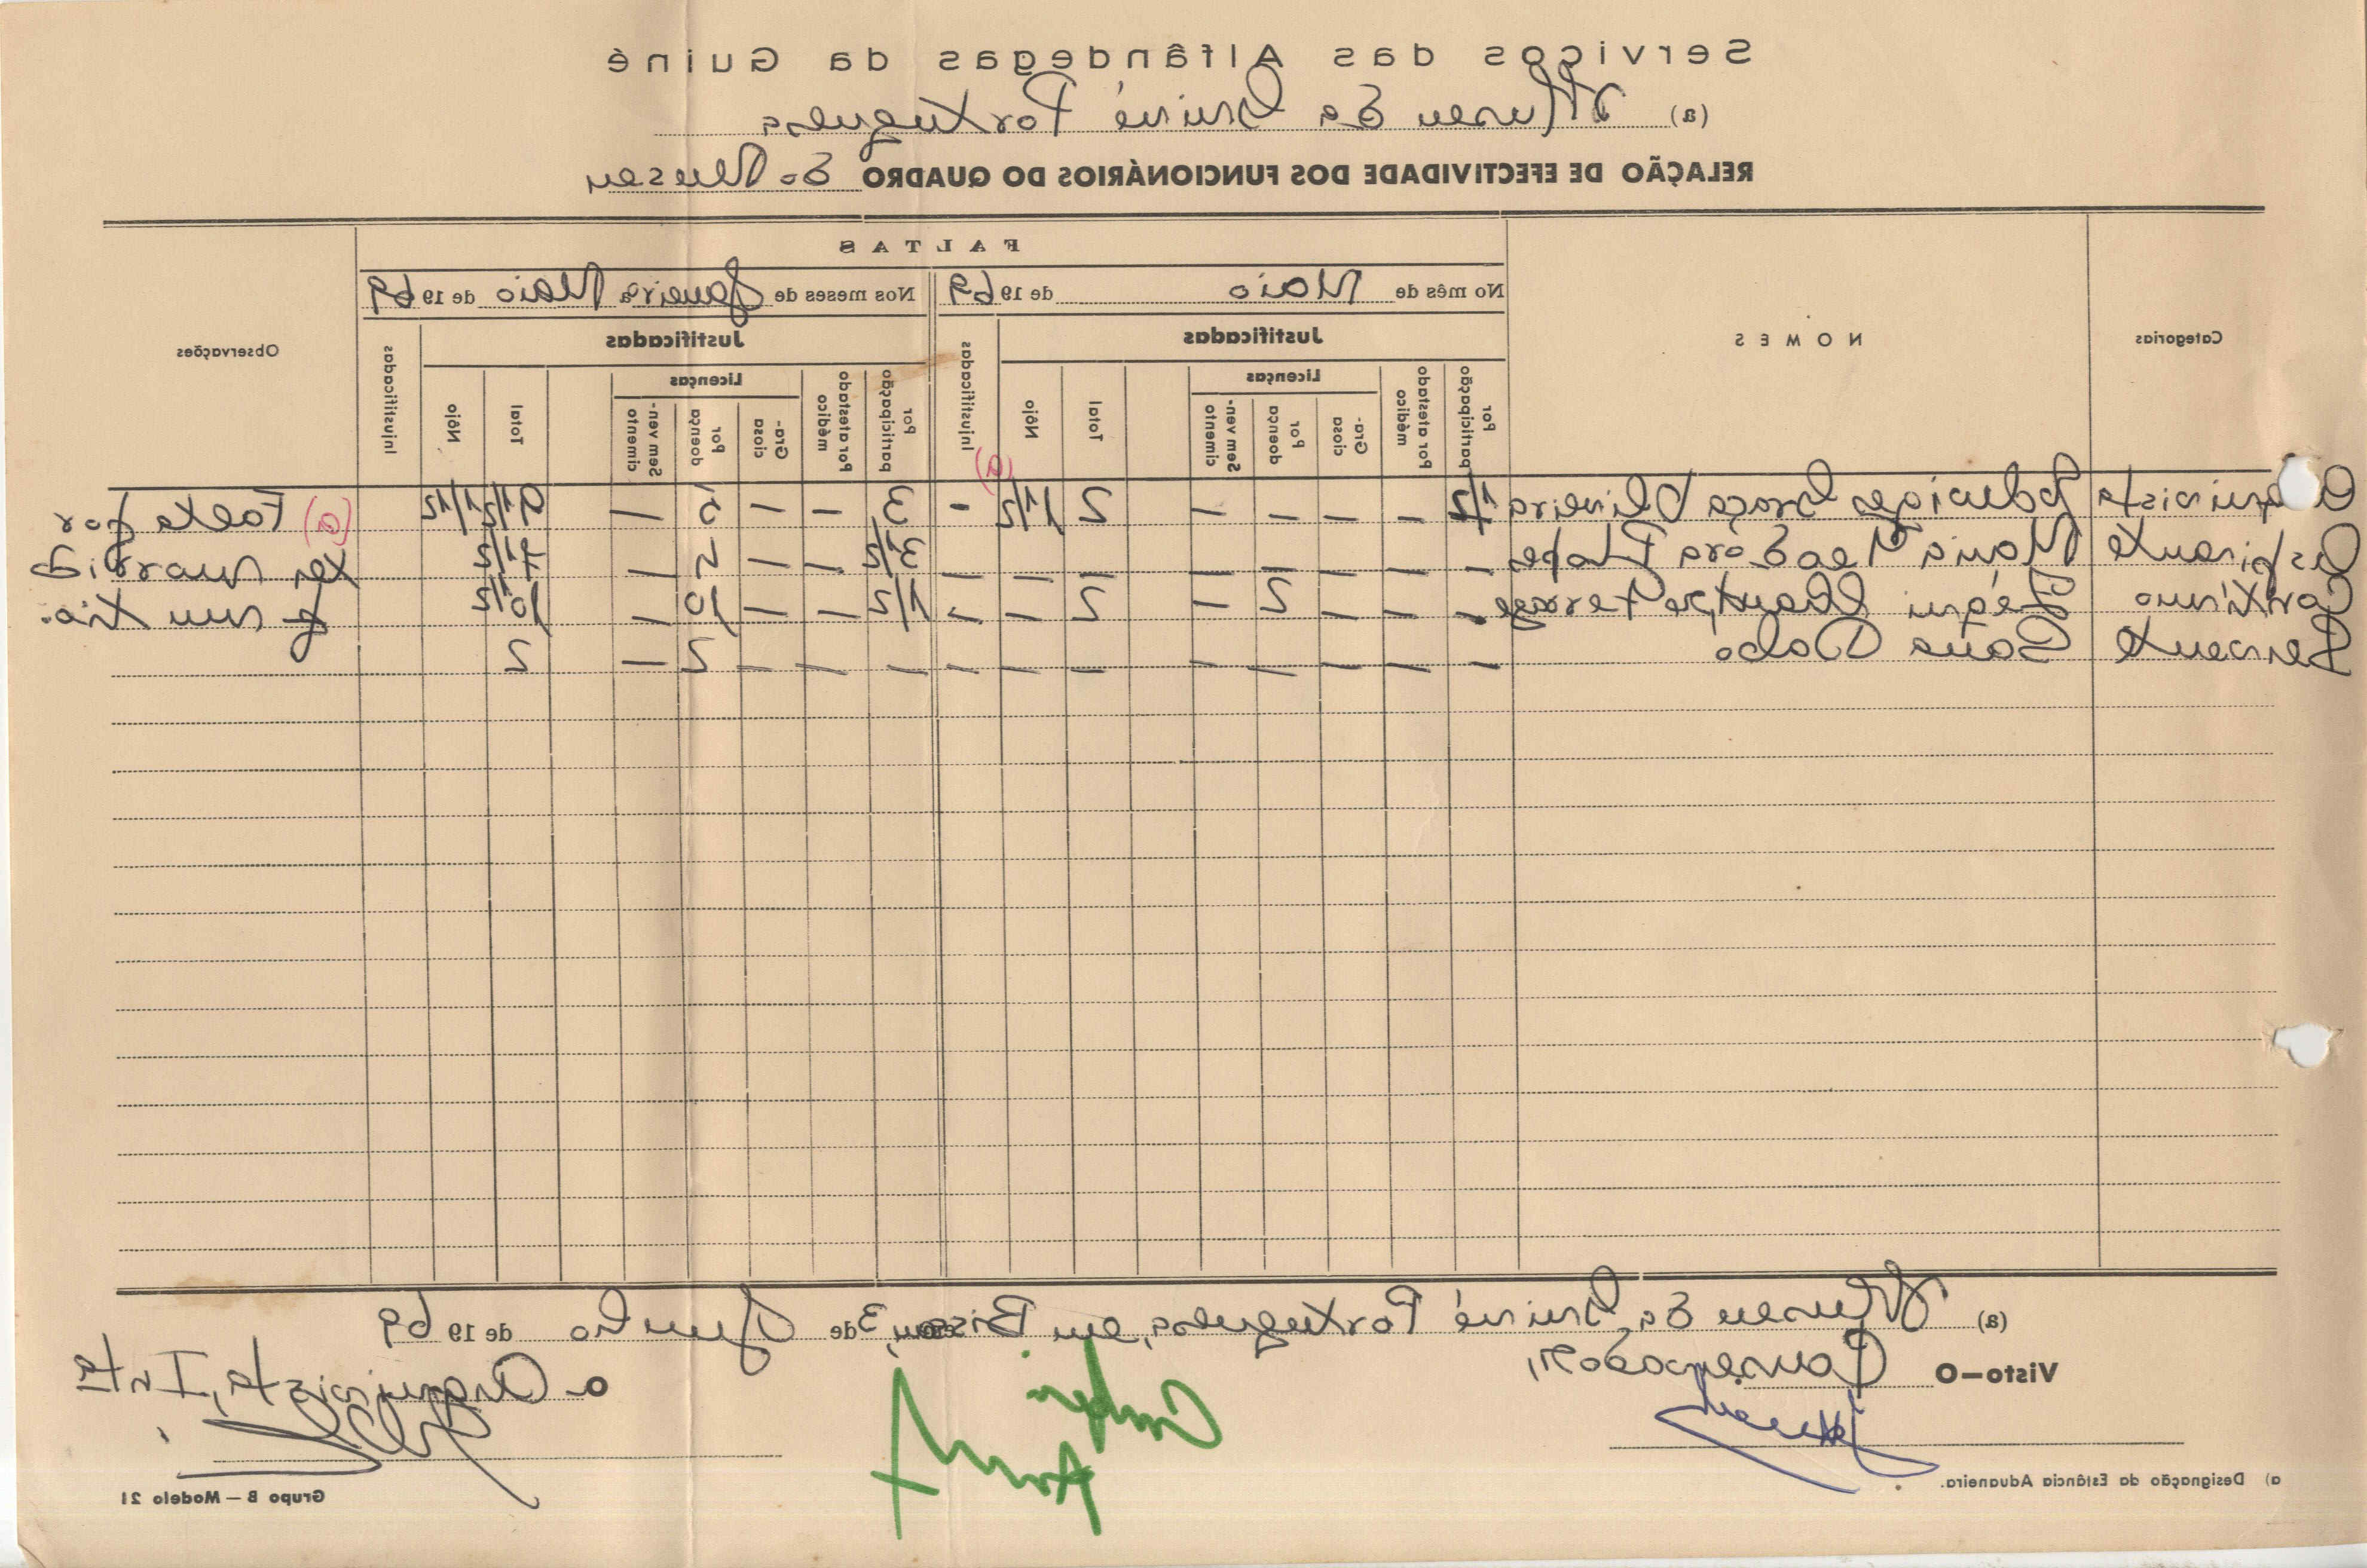 Serviços das Alfândegas da Guiné
(a) Museu da Guiné Portuguesa
RELAÇÃO DE EFECTIVIDADE DOS FUNCIONÁRIOS DO QUADRO do Museu
Categorias
NOMES
FALTAS
No mês de Maio de 1969
Nos meses de Janeiro a Maio de 1969
Observações
Justificadas
Injustificadas
Justificadas
Injustificadas
Por participação
Por atestado médico
Licenças
Graciosa
Por doença
Sem vencimento
Total
Nôjo
Por participação
Por atestado médico
Licenças
Graciosa
Por doença
Sem vencimento
Total
Nôjo
(a)
Graça Oliveira 1/2 — — — — 2 1 1/2 - 3 — — 5 — 9 1/2 1 1/2 (a) Falta por
Aspirante Maria — — — — — — — — 3 1/2 — — — 7 1/2 ter morrid
Contínuo — — — 2 — 2 — — 1/2 — — 10 — 10 1/2 o um tio.
Servente — — — — — — — — — — — 2 — 2
(a) Museu da Guiné Portuguesa, em Bissau, 3 de Junho de 1969
Visto—O
o Arquivista, Intº
a) Designação da Estância Aduaneira.
Grupo B — Modelo 21